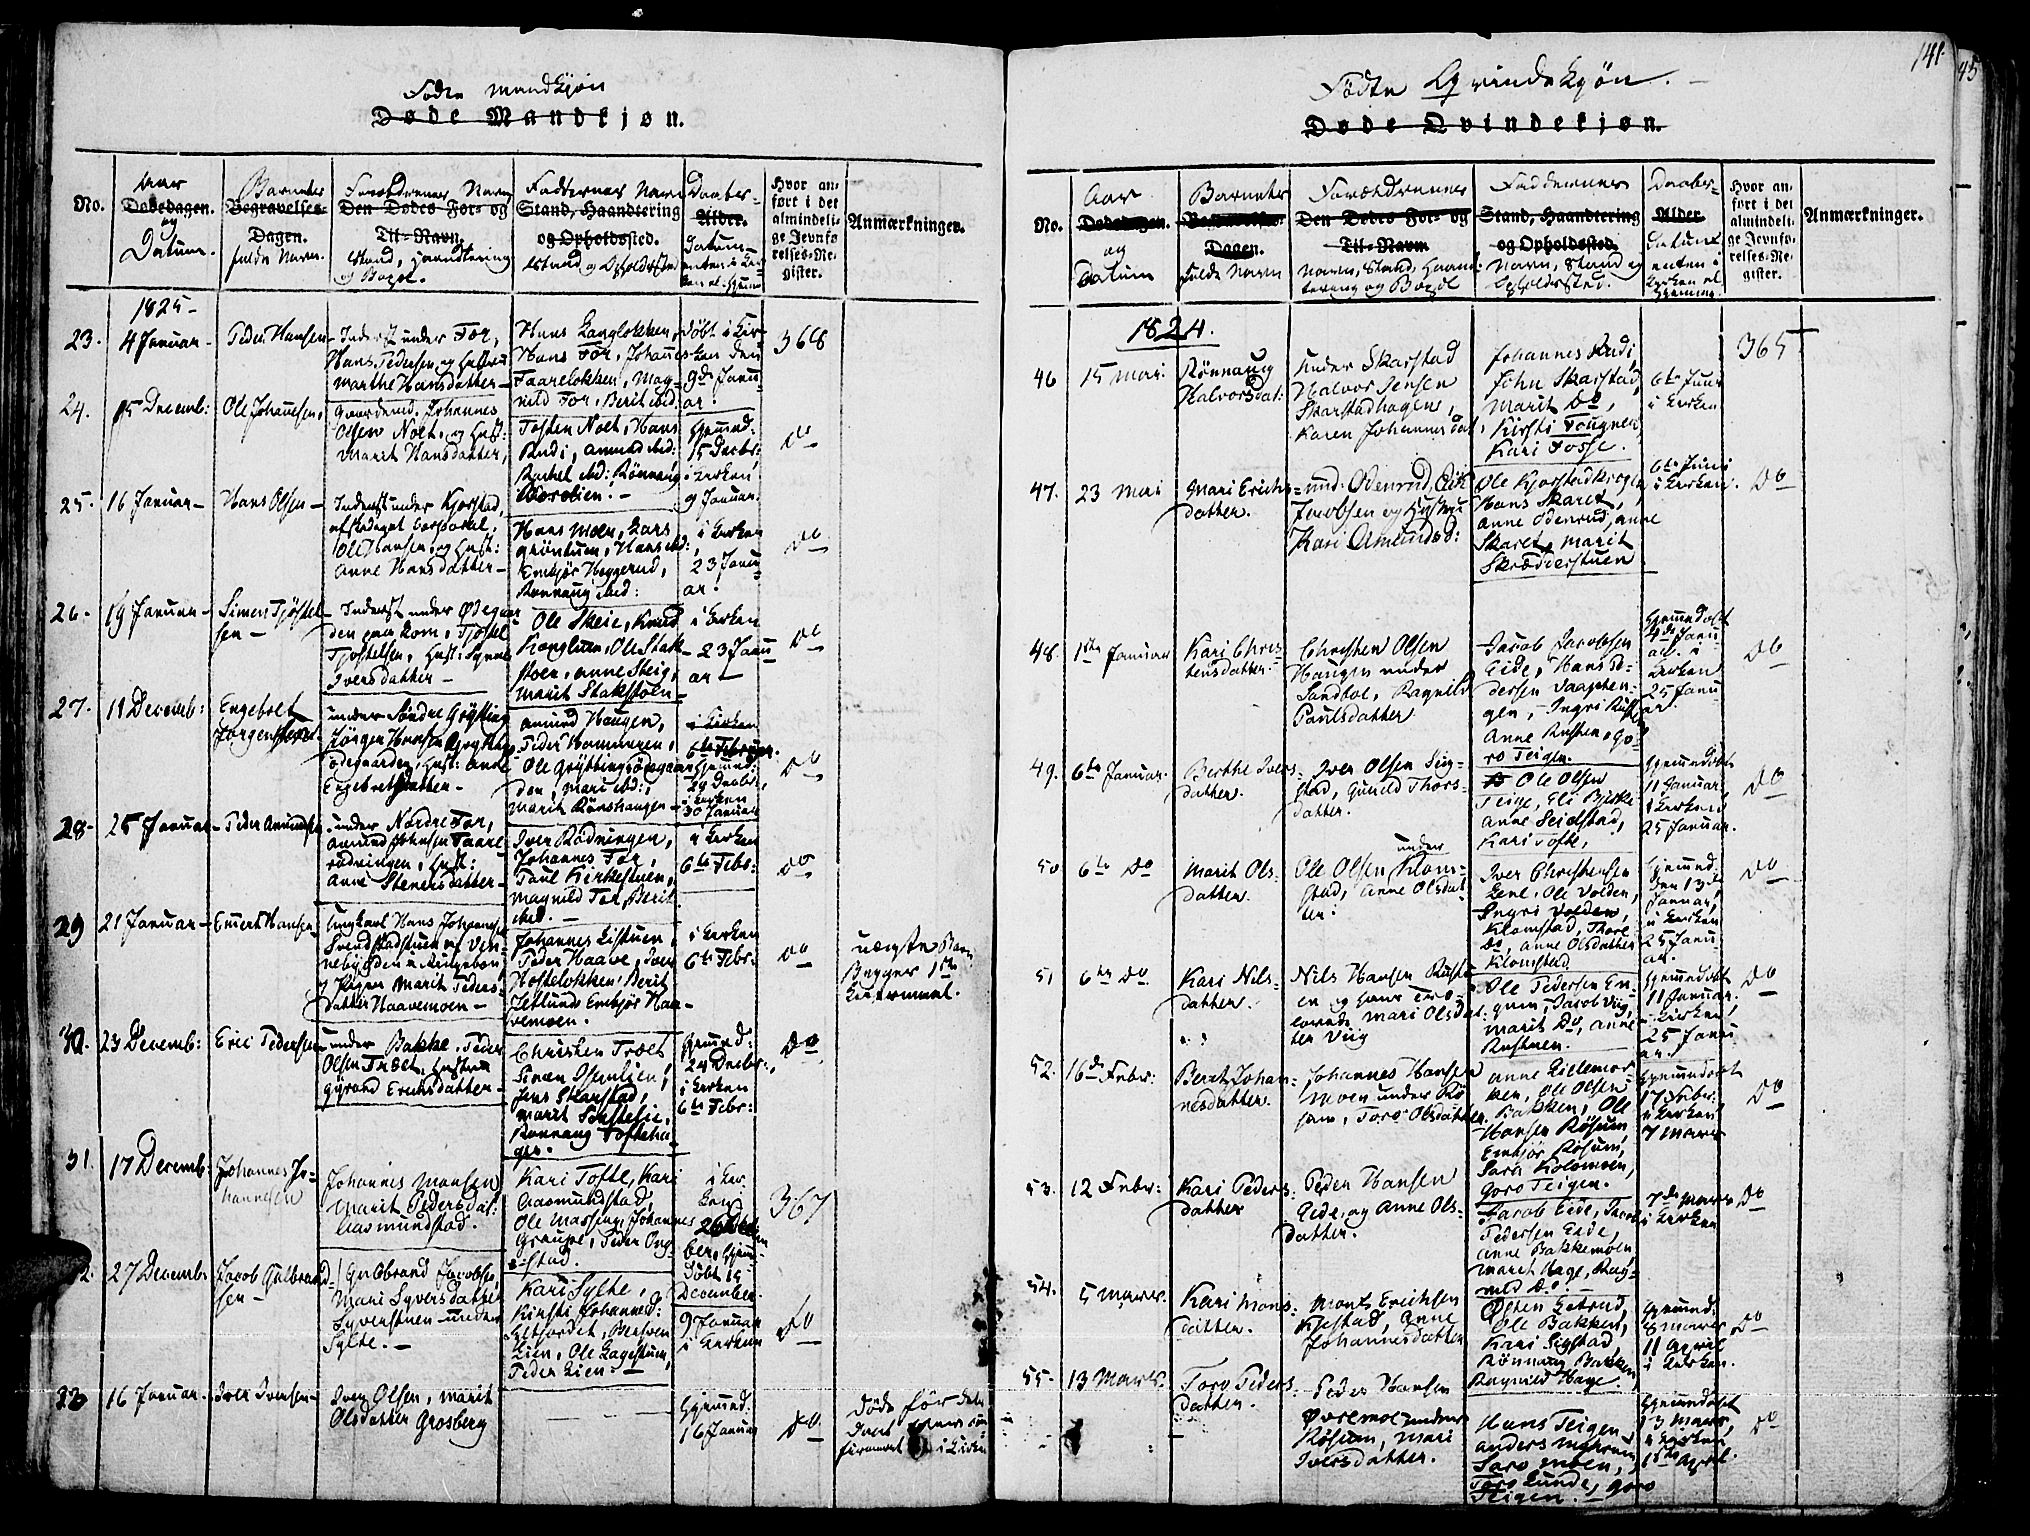 Fødte Mandkjøn
Døde Mandkjøn.
No.
Aar
Dødedagen.
og
Datum.
Barnets
Begravelses-
Dagen.
fulde Navn.
Forældrenes Navn
Den Dødes For- og
Til-Navn.
Stand, Haandtering
og Bopel.
Faddernes Navn
Stand, Haandtering
og Opholdssted.
Stand og Opholdssted
Daabs-
Alder.
Datum
Hvor an-
ført i det
almindeli-
ge Jevnfø
relses-Re-
gister.
Anmærkninger.
1825-
23.
4 Januar -
Peder Hansen
Inderst under Tor,
Hans Pedersen, og Hustru
Marthe Hansdatter -
Hans Langløkken,
Hans Tor, Johannes
Faareløkken, Mag-
nild Tor, Berit ibid:
døbt i Kir-
ken den
9de Janu-
ar.
368
24.
15 Decemb:
Ole Johannesen,
Gaardmd. Johannes
Olsen Noet, og Hust:
Marit Hansdatter,
Tosten Noet, Hans
Rudi, Amund ibd:
Rachel ibd: Rønnaug
Hjemmed.
15 Decbr:
i Kirken
9 Januar.
do
25.
16 Januar -
Hans Olsen -
Inderst under Kjorstad,
afskediget Corporal,
Ole Hansen, og Hust:
Anne Hansdatter -
Hans Moen, Lars
Grøntuen, Hans ibd:
Embjør Heggerud,
Rønnaug ibd:
i Kirken
23 Janu-
ar.
do
26.
19 Januar -
Simen Tjøstel
sen -
Inderst under Ødegaar
den paa Kom, Tjøstel
Tjøstelsen, Hust: Synne
Iversdatter -
Ole Skeie, Knud
Kongluen, Ole Stak-
stoen, Anne Steig,
Marit Stakstoen -
i Kirken
23 Janu
ar -
do
27.
11 Decemb:
Engebret
Jørgensen
under Søndre Grytting
Jørgen Hansen Grytting
ødegaarden, Hust: Anne
Engebretsdatter -
Amund Haugen,
Peder Hammeren,
Ole Gryttingsødegaar
den, Mari ibd:,
Marit Rønshaugen -
i Kirken
6te Februar.
Hjemmed:
29 Decbr:,
i Kirken
30 Januar
do
28-
25 Januar -
Peder Amundsen
under Nordre Tor,
Amund Johnsen Faare
rødningen, Hust:
Anne Stenersdatter -
Iver Rødningen,
Johannes Tor,
Paul Kirkestuen,
Magnild Tor, Berit
ibd. -
i Kirken
6te Febr:
do
29
21 Januar -
Emert Hansen
Ungkarl Hans Johannes
Svendstadstuen af Ven-
nebygden i Ringeboe,
og Pigen Marit Peders-
datter Haavemoen -
Johannes Listuen,
Peder Haave, Iver
Hosteløkken, Berit
Jetlund, Embjør Haa-
vemoen.
i Kirken
6te Febr:
do
uægte Barn
Begges 1ste
Leiermaal.
30.
23 Decemb:
Eric Pedersen
under Bakke, Peder
Olsen Træet, Hustru
Gyrand Ericksdatter -
Christen Træet
Simen Isumlien,
Jens Skarstad,
Marit
Rønnaug Tofteha-
gen.
Hjemmed:
24 Decbr:,
i Kirken
6te Febr:
do
31.
17 Decemb:
Johannes Jo-
hannesen
Johannes Monsen
Marit Pedersdat:
Aasmundstad.
Kari Tofte, Kari
Aasmundstad,
Ole Massing, Johannes
Graupe, Peder Ong-
stad.
i Kir-
ken
26 Decem
ber, Hjem-
døbt 19
December.
367
27 Decemb.
Jacob Gulbrand-
sen -
Gulbrand Jacobsen
Mari Syversdatter
Syverstuen under
Sylte. -
Kari Sylte,
Kirsti Johannesd:
Lien, Ole Lagestuen,
Peder Lien. -
9 Januar
i Kirken
do
33
16 Januar -
Iver Iversen -
Iver Olsen, Marit
Olsdatter Grosberg
Hjemmed.
16 Januar
do
Døde før den
i Kirken
141.
45
Fødte Qvindekjøn. -
Døde Qvindekjøn.
No.
Aar
Dødedagen.
og
Datum
Barnets
Begravelses-
Dagen.
Fulde Navn
Forældrenes
Den Dødes For- og
Til-Navn
Navn, Stand, Haand-
tering og Bopel
Faddernes
Stand, Haandtering
og Opholdssted.
Navn, Stand og
Opholdssted.
Daabs-
Alder
Datum
enten i
Kirken el
Hjemme.
Hvor an-
ført i det
almindeli-
ge Jevnfø-
relses-Re-
gister.
Anmærkninger.
1824.
46
15 Mai.
Rønnaug
Halvorsdat:
under Skarstad
Halvor Jensen
Skarstadhagen,
Karen Johannesdat
Johannes Rudi,
John Skarstad
Marit do,
Kirsti Fougner,
Kari Fosse.
6te Juni
i Kirken
365
47.
23 Mai
Mari Erichs-
datter.
und. Odenrud, Erik
Jacobsen og Hustru
Kari Amundsd:
Ole Kjorstadkroge,
Hans Skaret,
Anne Odenrud, Anne
Skaret, Marit
Skrædderstuen
6te Juni
i Kirken.
do
48.
1ste Januar
Kari Chris-
tensdatter.
Christen Olsen
Haugen under
Sandboe, Ragnild
Paulsdatter.
Jacob Jacobsen
Eide, Hans Pe-
dersen Vaaphen-
gen, Ingri Rusten
Anne Rusten, Go-
ro Teigen.
Hjemmedøbt
4de Janu-
ar. i
Kirken
25 Janu-
ar.
do
49.
6te Januar.
Berthe Ivers-
datter.
Iver Olsen Sig-
stad, Gunild Thors-
datter.
Ole Olsen
Teige, Eli Bjerke
Anne Seielstad,
Kari Tofte,
Hjemmedøbt
11 Januar,
i Kirken
25 Januar.
do
50
6te do
Marit Ols-
datter.
Ole Olsen under Klom-
stad, Anne Olsdat-
ter.
Iver Christensen
Lene, Ole Volden,
Ingri Volden,
Klomstad, Thore
do, Anne Olsdatter
Klomstad
Hjemmed.
den 13de
Januar,
i Kirken
25 Janu-
ar.
do
51
6te do
Kari Nils-
datter.
Nils Hansen Rust-
en og hans Tro-
lovede Mari Olsdat-
ter Viig
Ole Pedersen En-
gum, Jacob Viig,
Marit do, Anne
Rustuen.
Hjemmedøbt
11 Januar.
i Kirken,
25 Janu-
ar.
do
52.
16de Febr:
Berit Johan-
nesdatter.
Johannes Hansen
Moen under Rø-
sum, Toro Olsdatter
Anne Lillemor-
ken, Ole Olsen
Bakken, Ole
Hansen Røsum,
Embjør Røsum,
Sara Kolomoen,
Goro Teigen.
Hjemmedøbt
17 Febr.
i Kirken
7 Marts
do
53.
12 Febr:
Kari Peders-
datter
Peder Hansen
Eide, og Anne Ols-
datter.
Jacob Eide, Thor
Pedersen Eide,
Anne Bakkemoen,
Marit Hage, Rag-
nild do. -
7de Marts
i Kirken
do
54.
5 Marts.
Kari Mons-
datter.
Monts Erichsen
Kjestad, Anne
Johannesdatter
Østen Letrud,
Ole Bakken,
Kari Sigstad,
Rønnaug Bakken,
Ragnild Hage.
Hjemmed:
8 Marts
11 April
i Kirken.
do
55.
13 Marts.
Toro Peders-
datter.
Peder Hansen
Øvremoe under
Røsum, Mari
Iversdatter.
Hans Teigen
Anders
Moen,
Toro Lunde, Goro
Teigen.
Hjemmedøbt
13 Marts,
i Kirken
18de April.
do